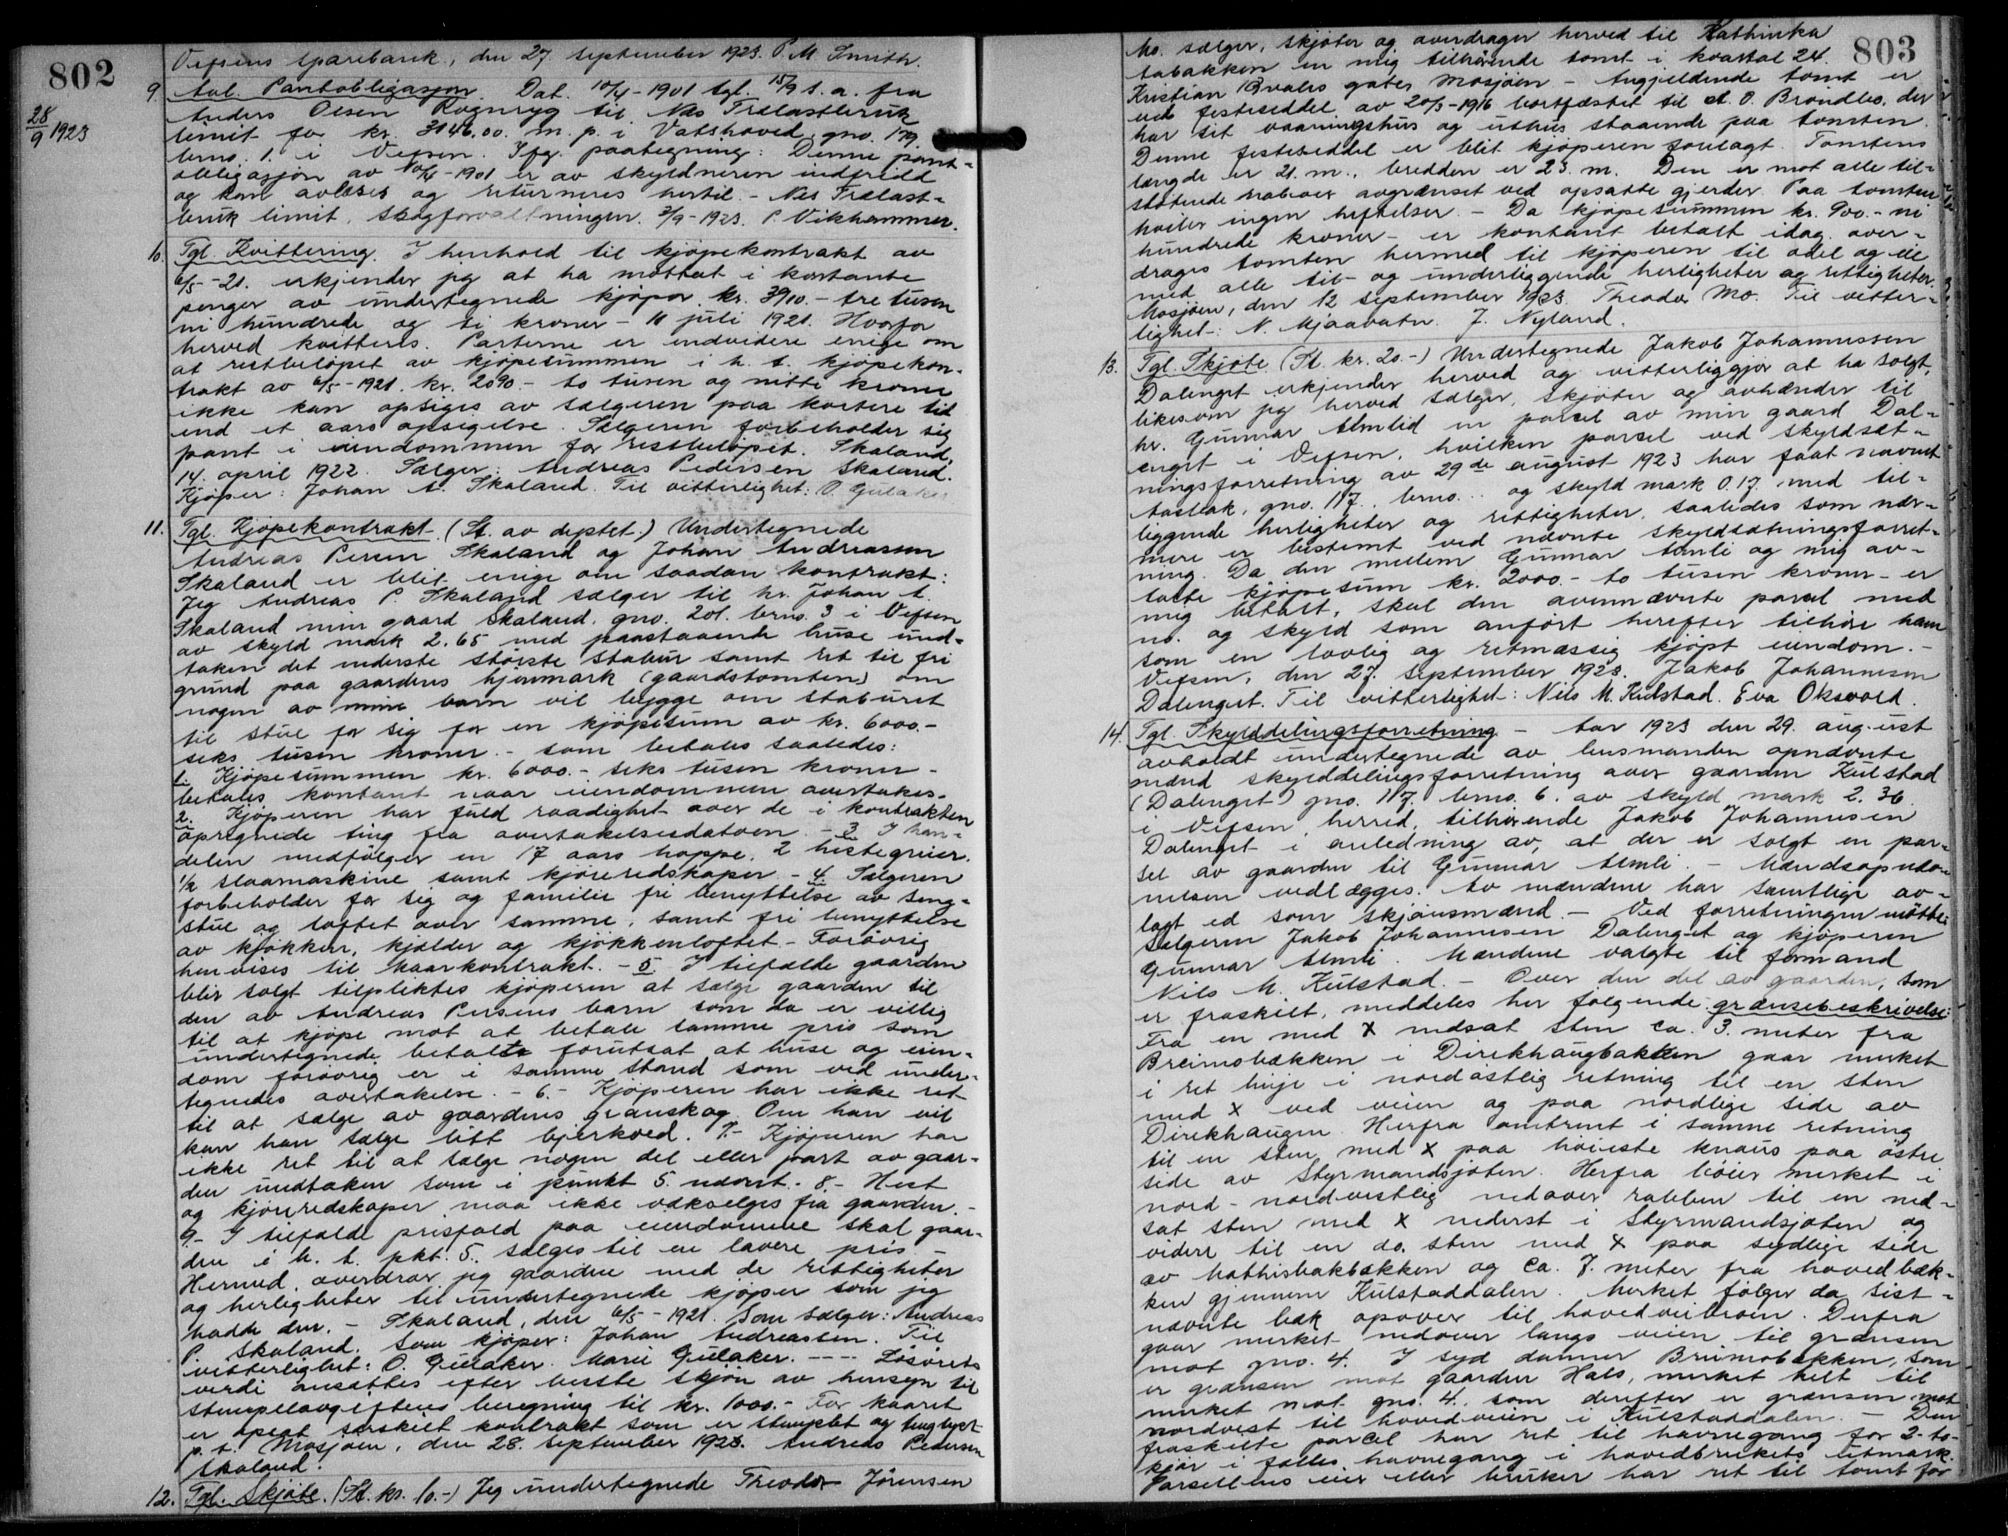 802
28/9 1923
Vefsens Sparebank, den 27 september 1923. P. M. Smith.
9. Avl. Pantobligasjon. Dat. 10/4-1901 tgl. 15/9 s. a. fra
Anders Olsen Rognryg til Nes Trælastbruk
limit for kr. 3146.00. m. p. i Vatshoved, gno. 179.
brno. 1. i Vefsen. Ifg. paategning: Denne pant-
obligasjon av 10/4-1901 er av skyldneren indfriid
og kan avlæses og returneres hertil. - Nes Trælast-
bruk limit. Skogforvaltningen. 3/9-1923. P. Vikhammer.
10. Tgl. Kvittering. I henhold til kjøpekontrakt av
6/5-21. erkjender jeg at ha mottat i kontante
penger av undertegnede kjøper kr. 3910.- tre tusen
ni hundrede og ti kroner - 11 juli 1921. Hvorfor
herved kvitteres. Parterne er endvidere enige om
at restbeløpet av kjøpesummen i h. t. kjøpekon-
trakt av 6/5-1921. kr. 2090.- to tusen og nitti kroner
ikke kan opsiges av sælgeren paa kortere tid
end et aars opsigelse. Sælgeren forbeholder sig
pant i eiendommen for restbeløpet. Skaland,
14. april 1922. Sælger: Andreas Pedersen Skaland.
Kjøper: Johan A. Skaland. Til vitterlighet: O. Gulaker
11. Tgl. Kjøpekontrakt. (St. av deptet.) Undertegnede
Andreas Persen Skaland og Johan Andreassen
Skaland er blit enige om saadan kontrakt:
Jeg Andreas P. Skaland sælger til hr. Johan A.
Skaland min gaard Skaland, gno. 201. brno. 3 i Vefsen
av skyld mark 2.65 med paastaaende huse und-
taken det nederste største stabur samt ret til fri
grund paa gaardens hjemmark (gaardstomten) om
nogen av mine barn vil bygge om staburet
til stue for sig for en kjøpesum av kr. 6000.-
seks tusen kroner. - som betales saaledes:
1. Kjøpesummen kr. 6000.- seks tusen kroner -
betales kontant naar eiendommen overtakes.
2. Kjøperen har fuld raadighet over de i kontrakten
opregnede ting fra overtakelsesdatoen. - 3. I han-
delen medfølger en 17 aars hoppe. 2 hestegreier.
1/2 slaamaskine samt kjøreredskaper - 4. Sælgeren
forbeholder for sig og familie fri benyttelse av seng-
stue og loftet over samme, samt fri benyttelse
av kjøkken, kjælder og kjøkkenloftet. - Forøvrig
henvises til kaarkontrakt. - 5 I tilfælde gaarden
blir solgt tilpliktes kjøperen at sælge gaarden til
den av Andreas Persens barn som da er villig
til at kjøpe mot at betale samme pris som
undertegnede betalte forutsat at huse og eien-
dom forøvrig er i samme stand som ved under-
tegnedes overtakelse. - 6. - Kjøperen har ikke ret
til at sælge av gaardens granskog. Om han vil
kan han sælge litt bjerkved. 7. - Kjøperen har
ikke ret til at sælge nogen del eller part av gaar-
den undtaken som i punkt 5. nævnt. - 8. - Hest
og kjøreredskaper maa ikke vækselges fra gaarden. -
9. - I tilfælde prisfald paa eiendomme skal gaar-
den i h. t. pkt. 5. sælges til en lavere pris. -
Hermed overdrar jeg gaarden med de rettigheter
og herligheter til undertegnede kjøper som jeg
hadde den. - Skaland, den 6/5-1921. Som sælger: Andreas
P. Skaland. Som kjøper: Johan Andreassen. Til
vitterlighet: O. Gulaker. Marie Gulaker. ---- Løsørets
verdi ansættes efter beste skjøn av hensyn til
stempelavgiftens beregning til kr. 1000.- For kaaret
er opsat særskilt kontrakt som er stemplet og tinglyst
p. t. Mosjøen, den 28. september 1923. Andreas Pedersen
Skaland.
12. Tgl. Skjøte. (St. kr. 10.-) Jeg undertegnede Theodor Jørensen
803
Mo. sælger, skjøter og overdrager herved til Kathinka
Aabakken en mig tilhørende tomt i kvartal 24.
Kristian Qvales gate, Mosjøen - Angjældende tomt er
ved festeseddel av 20/3-1916 bortfæstet til A. O. Brøndbo, der
har sit vaaningshus og uthus staaende paa tomten.
Denne festeseddel er blit kjøperen forelagt. Tomtens
længde er 21. m., bredden er 23. m. Den er mot alle til-
støtende naboer avgrænset ved opsatte gjerder. Paa tomten
hviler ingen heftelser. - Da kjøpesummen kr. 900.- ni
hundrede kroner - er kontant betalt idag, over-
drages tomten hermed til kjøperen til odel og eie
med alle til- og underliggende herligheter og rettigheter.
Mosjøen, den 12 september 1923. Theodor Mo. Til vitter-
lighet: N. Mjaavatn. J. Nyland.
13. Tgl. Skjøte (St. kr. 20.-) Undertegnede Jakob Johannessen
Dalenget erkjender herved og vitterliggjør at ha solgt,
likesom jeg herved sælger, skjøter og avhænder til
hr. Gunnar Almlid en parcel av min gaard Dal-
enget i Vefsen, hvilken parsel ved skyldsæt-
ningsforretning av 29de august 1923 har faat navnet
Aasbak, gno. 117. brno. .. og skyld mark 0.17. med til-
liggende herligheter og rettigheter, saaledes som nær-
mere er bestemt ved nævnte skyldsætningsforret-
ning. Da den mellem Gunnar Almli og mig av-
talte kjøpesum kr. 2000.- to tusen kroner - er
mig betalt, skal den ovennævnte parcel med
no. og skyld som anført herefter tilhøre ham
som en lovlig og retmæssig kjøpt eiendom. -
Vefsen, den 27. september 1923. Jakob Johannesen
Dalenget. Til vitterlighet: Nils M. Kulstad. Eva Oksvold.
14. Tgl. Skylddelingsforretning - Aar 1923 den 29. august
avholdt undertegnede av lensmanden opnævnte
mænd skylddelingsforretning over gaarden Kulstad
(Dalenget) gno. 117. brno. 6. av skyld mark 2.36.
i Vefsen herred, tilhørende Jakob Johannesen
Dalenget i anledning av, at der er solgt en par-
sel av gaarden til Gunnar Almli. - Mændsopnæv-
nelsen vedlægges. Av mændene har samtlige av-
lagt ed som skjønsmænd. - Ved forretningen møtte:
Sælgeren Jakob Johannesen Dalenget og kjøperen
Gunnar Almli. Mændene valgte til formand
Nils M. Kulstad. - Over den del av gaarden, som
er fraskilt, meddeles her følgende grænsebeskrivelse:
Fra en med x nedsat sten ca. 3. meter fra
Breimobækken i Direkhaugbakken gaar merket
i ret linje i nordøstlig retning til en sten
med x ved veien og paa nordlige side av
Direkhaugen. Herfra omtrent i samme retning
til en sten med x paa høieste knaus paa østre
side av Styrmandsjøten. Herfra bøier merket i
nord-nordvestlig nedover rabben til en ned-
sat sten med x nederst i Styrmandsjøten og
videre til en do. sten med x paa sydlige side
av Mathisbakbækken og ca. 7. meter fra hovedbæk-
ken gjennem Kulstaddalen. Merket følger da sist-
nævnte bæk opover til hovedveibroen. Derfra
gaar merket nedover langs veien til grænsen
mot gno. 4. I syd danner Breimobækken, som
er grænsen mot gaarden Hals, merket helt til
merket mot gno. 4. som derefter er grænsen mot
nordvest til hovedveien i Kulstaddalen. - Den
fraskilte parcel har ret til havnegang for 2-to-
kjør i fælles havnegang i hovedbrukets utmark.
Parsellens eier eller bruker har ret til tomt for